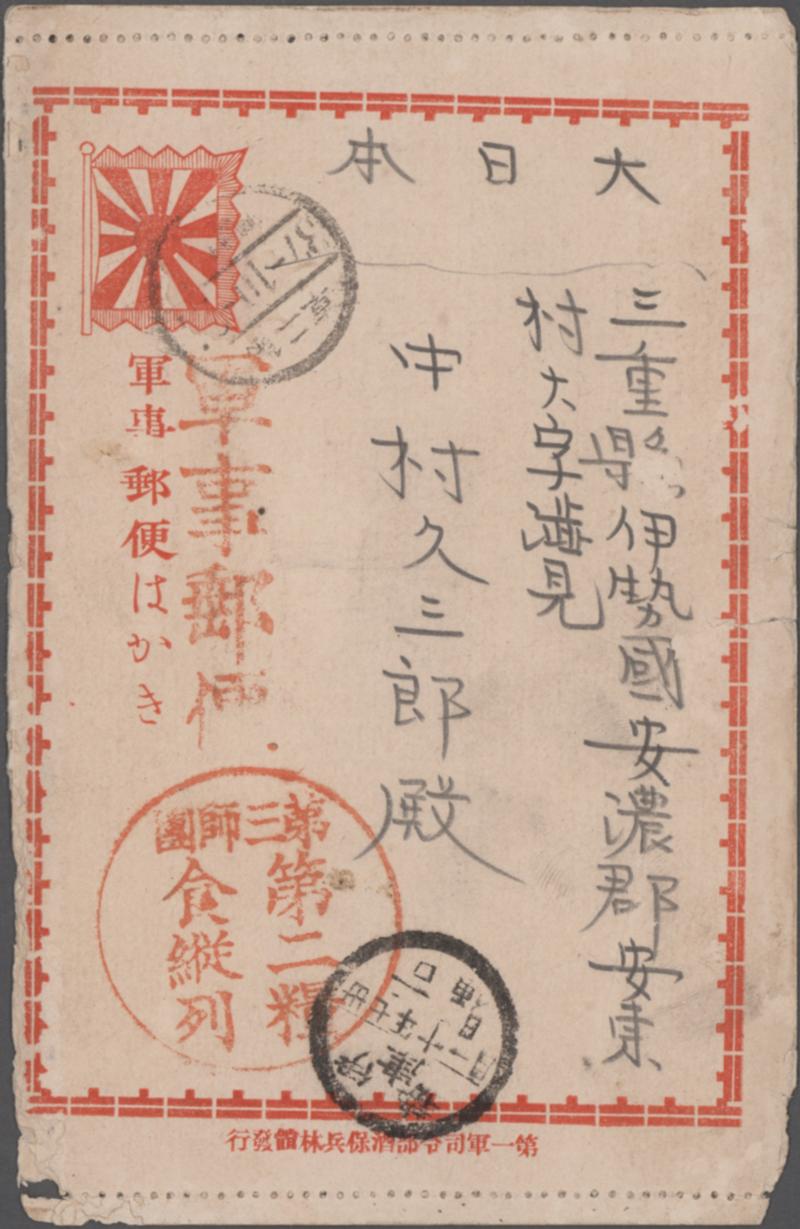 大日本
三重県伊勢國安濃郡安東
村大字
中村久三郎殿
軍事郵便
軍事郵便はかき
第三師團
第二糧
食縦列
第一軍司令部酒保兵林館發行